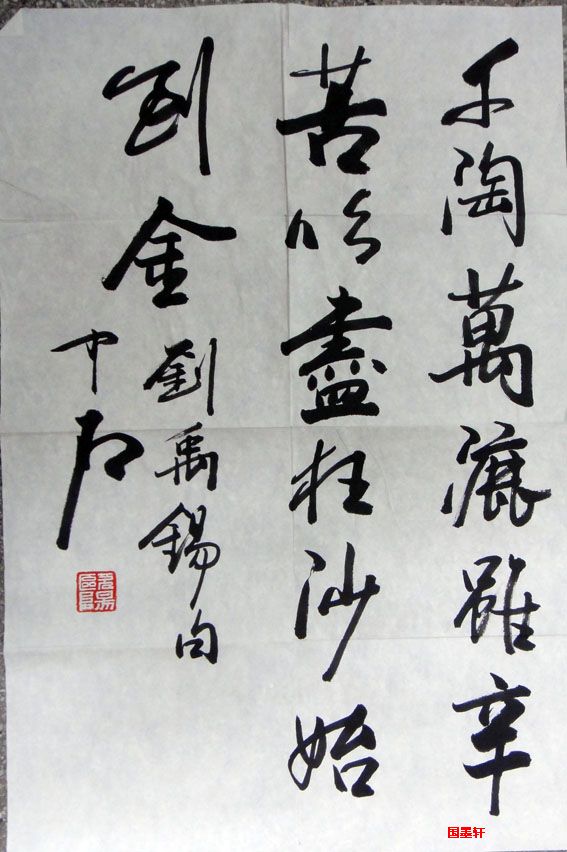 千陶萬漉雖辛
苦吹盡狂沙始
到金
劉禹錫句
中石
国墨轩